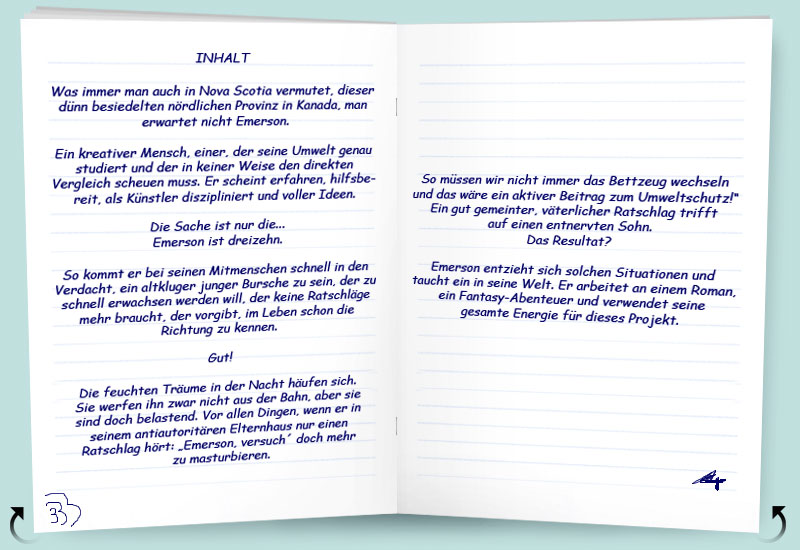 INHALT
Was immer man auch in Nova Scotia vermutet, dieser
dünn besiedelten nördlichen Provinz in Kanada, man
erwartet nicht Emerson.
Ein kreativer Mensch, einer, der seine Umwelt genau
studiert und der in keiner Weise den direkten
Vergleich scheuen muss. Er scheint erfahren, hilfsbe-
reit, als Künstler diszipliniert und voller Ideen.
Die Sache ist nur die...
Emerson ist dreizehn.
So kommt er bei seinen Mitmenschen schnell in den
Verdacht, ein altkluger junger Bursche zu sein, der zu
schnell erwachsen werden will, der keine Ratschläge
mehr braucht, der vorgibt, im Leben schon die
Richtung zu kennen.
Gut!
Die feuchten Träume in der Nacht häufen sich.
Sie werfen ihn zwar nicht aus der Bahn, aber sie
sind doch belastend. Vor allen Dingen, wenn er in
seinem antiautoritären Elternhaus nur einen
Ratschlag hört: „Emerson, versuch´ doch mehr
zu masturbieren.
So müssen wir nicht immer das Bettzeug wechseln
und das wäre ein aktiver Beitrag zum Umweltschutz!“
Ein gut gemeinter, väterlicher Ratschlag trifft
auf einen entnervten Sohn.
Das Resultat?
Emerson entzieht sich solchen Situationen und
taucht ein in seine Welt. Er arbeitet an einem Roman,
ein Fantasy-Abenteuer und verwendet seine
gesamte Energie für dieses Projekt.
4